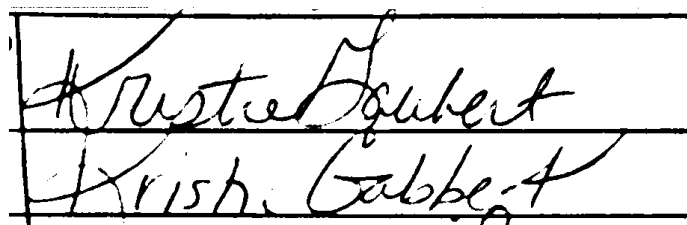 Kristie Gabbert
Kristi Gabbert